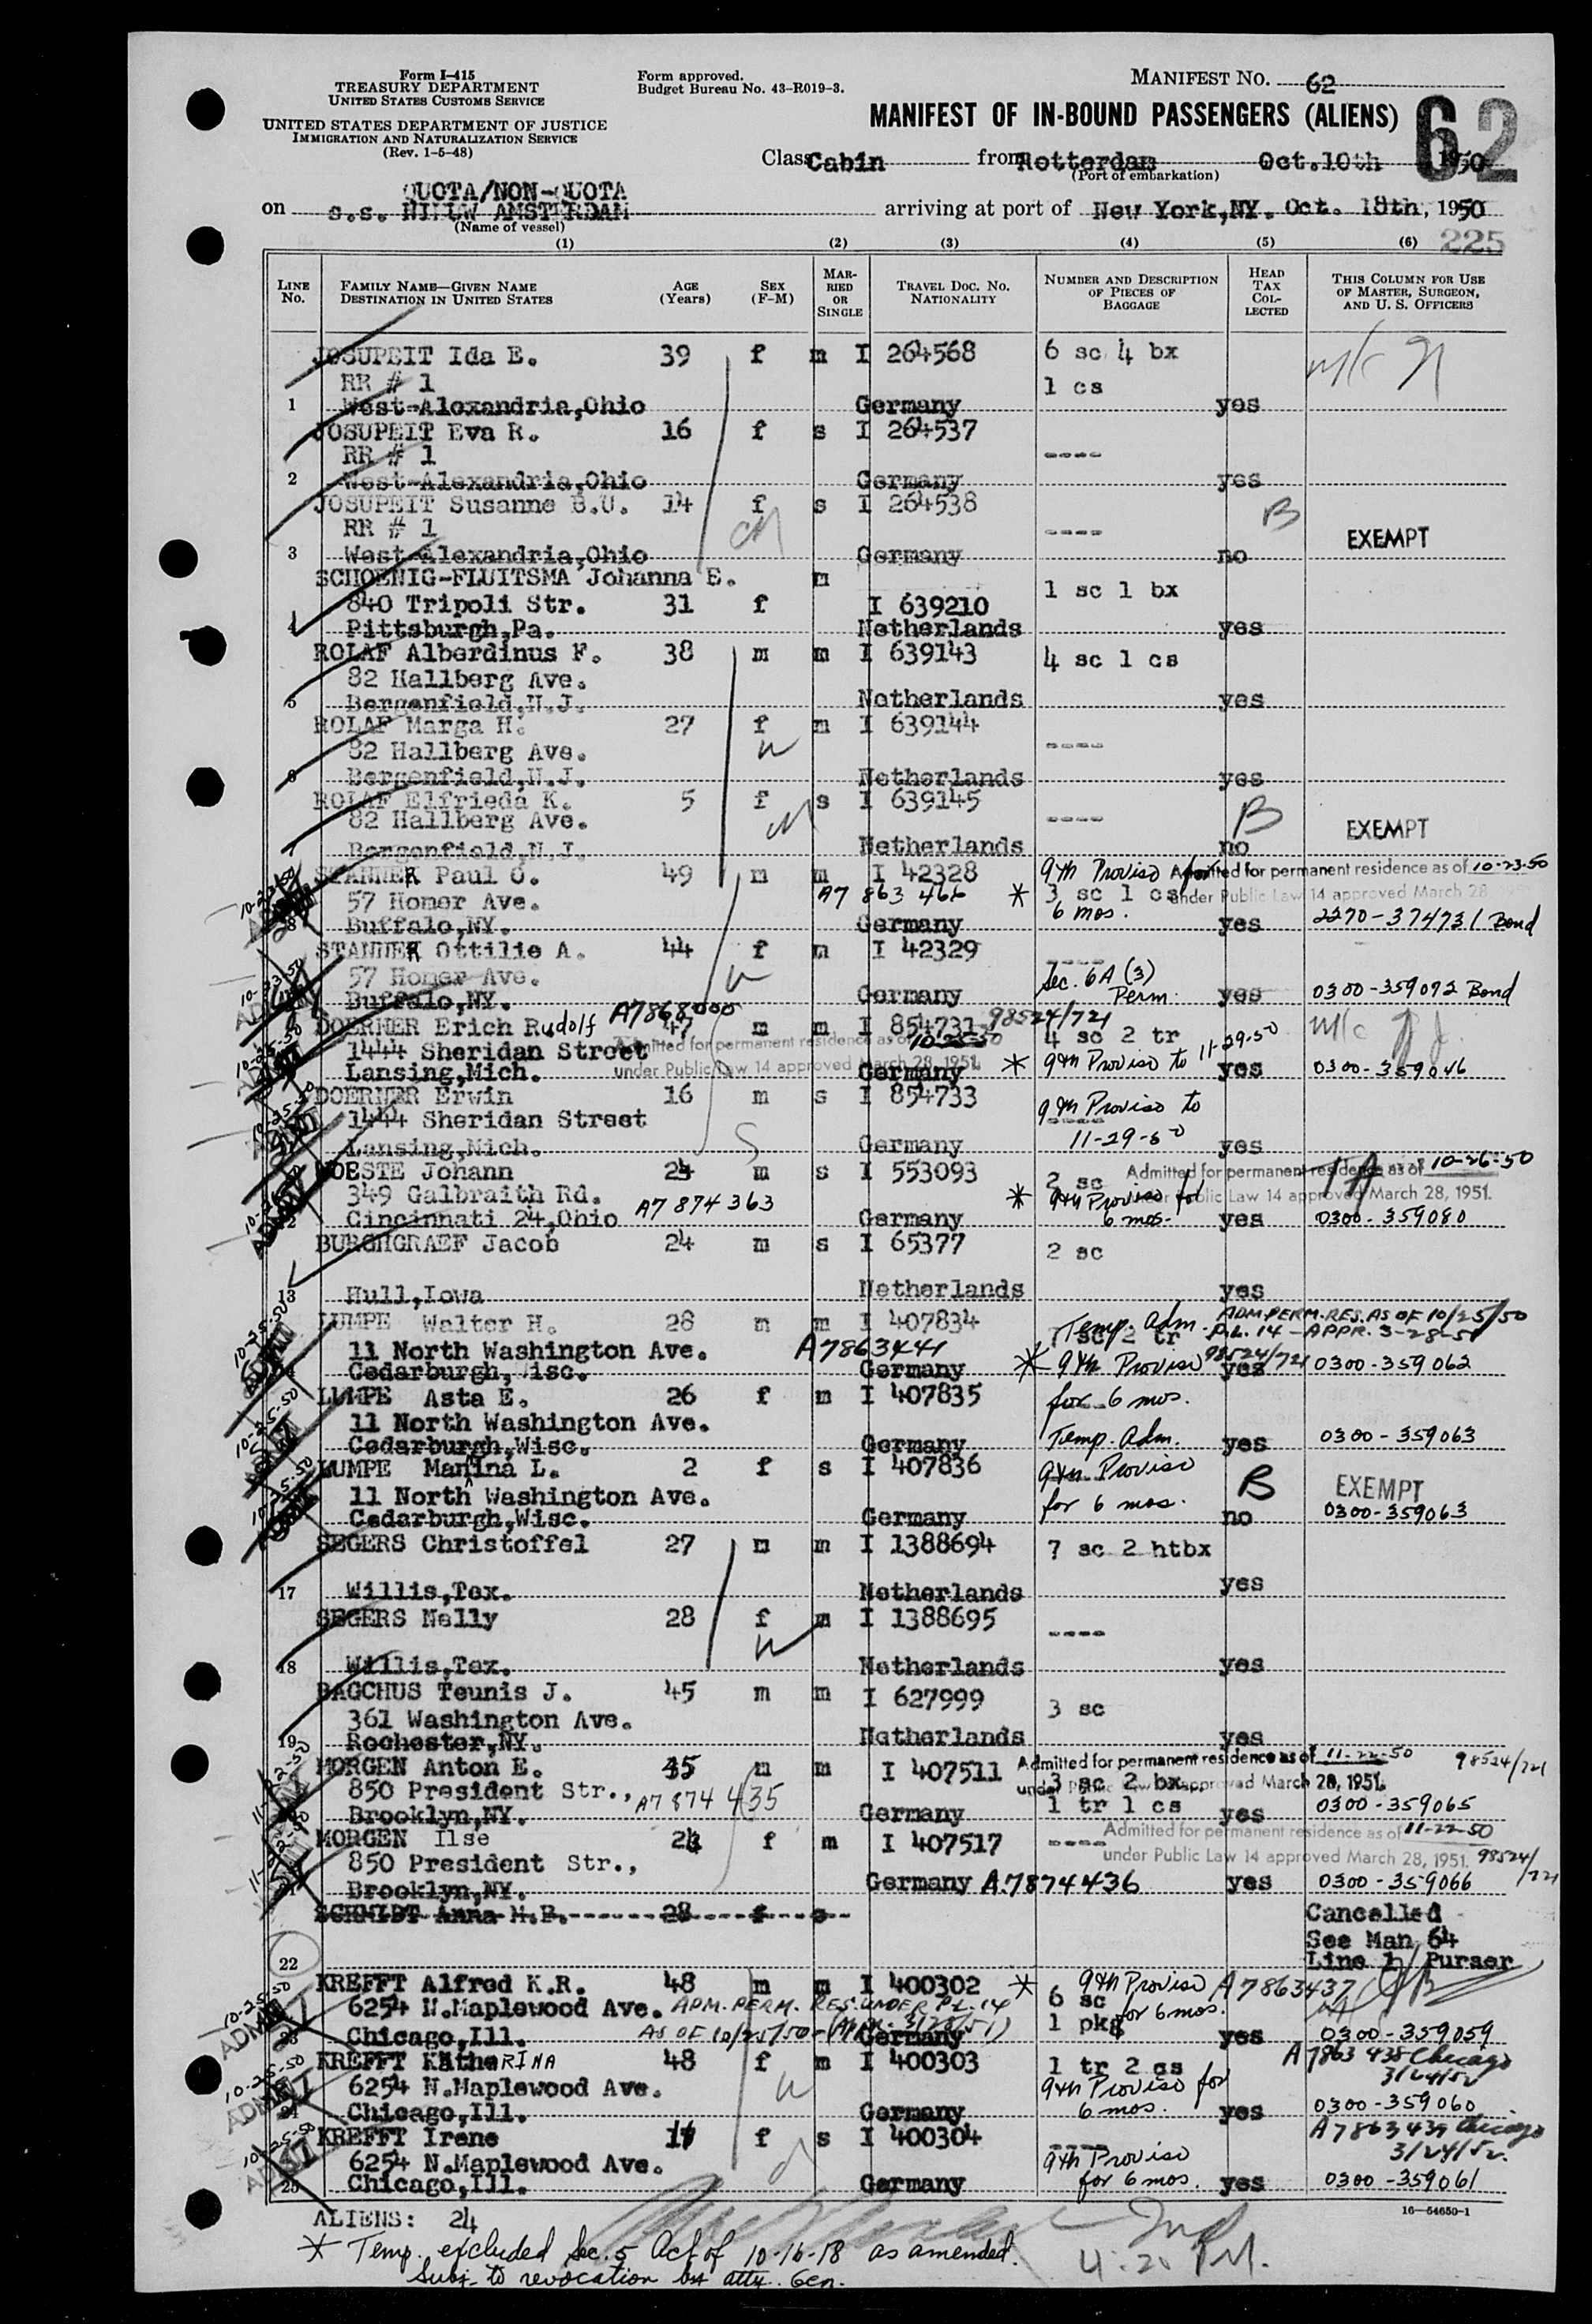 Form I-415
TREASURY DEPARTMENT
UNITED STATES CUSTOMS SERVICE
UNITED STATES DEPARTMENT OF JUSTICE
IMMIGRATION AND NATURALIZATION SERVICE
(Rev. 1-5-48)
Form approved.
Budget Bureau No. 43-R019-3.
MANIFEST NO. 62
MANIFEST OF IN-BOUND PASSENGERS (ALIENS) 62
Class Cabin from Rotterdam Oct.10th 1950
(Port of embarkation)
QUOTA/NON-QUOTA
on s.s. NIEUW AMSTERDAM arriving at port of New York,NY. Oct. 18th, 1950
(Name of vessel)
225
(1) (2) (3) (4) (5) (6)
LINE No. FAMILY NAME—GIVEN NAME DESTINATION IN UNITED STATES AGE (Years) SEX (F-M) MARRIED OR SINGLE TRAVEL DOC. NO. NATIONALITY NUMBER AND DESCRIPTION OF PIECES OF BAGGAGE HEAD TAX COLLECTED THIS COLUMN FOR USE OF MASTER, SURGEON, AND U. S. OFFICERS
JOSUPEIT Ida E. 39 f m I 264568 6 sc 4 bx
RR # 1 1 cs
1 West-Alexandria,Ohio Germany yes
JOSUPEIT Eva R. 16 f s I 264537
RR # 1 ----
2 West-Alexandria,Ohio Germany yes
JOSUPEIT Susanne B.U. 14 f s I 264538 B
RR # 1 ---- EXEMPT
3 West-Alexandria,Ohio Germany no
SCHOENIG-FLUITSMA Johanna E. m
840 Tripoli Str. 31 f I 639210 1 sc 1 bx
4 Pittsburgh,Pa. Netherlands yes
ROLAF Alberdinus F. 38 m m I 639143 4 sc 1 cs
82 Hallberg Ave.
5 Bergenfield,N.J. Netherlands yes
ROLAF Marga H. 27 f m I 639144
82 Hallberg Ave. ----
6 Bergenfield,N.J. Netherlands yes
ROLAF Elfrieda K. 5 f s I 639145 B
82 Hallberg Ave. ---- EXEMPT
7 Bergenfield,N.J. Netherlands no
STANNER Paul O. 49 m m I 42328 9th Proviso for Admitted for permanent residence as of 10-23-50
57 Homer Ave. A7 863 466 * 3 sc 1 cs under Public Law 14 approved March 28 1951
8 Buffalo,NY. Germany 6 mos. yes 2270-374731 Bond
STANNER Ottilie A. 44 f m I 42329 ----
57 Homer Ave. Sec. 6A (3)
Buffalo,NY. Germany Perm. yes 0300-359092 Bond
DOERNER Erich Rudolf A7868000 47 m m I 854731 98524/721
1444 Sheridan Street Admitted for permanent residence as of 10-25-50 4 sc 2 tr
Lansing,Mich. under Public Law 14 approved March 28, 1951. Germany * 9th Proviso to 11-29-50 yes 0300-359046
DOERNER Erwin 16 m s I 854733 9th Proviso to
1444 Sheridan Street ----
Lansing,Mich. Germany 11-29-50 yes
WOESTE Johann 24 m s I 553093 2 sc Admitted for permanent residence as of 10-26-50
349 Galbraith Rd. A7 874 363 * 9th Proviso for under Public Law 14 approved March 28, 1951.
12 Cincinnati 24,Ohio Germany 6 mos. yes 0300-359080
BURGHGRAEF Jacob 24 m s I 65377 2 sc
13 Hull,Iowa Netherlands yes
LUMPE Walter H. 28 m m I 407834 Temp. Adm. ADM.PERM.RES.AS OF 10/25/50
11 North Washington Ave. A7863441 7 sc 2 tr P.L. 14 - APPR. 3-28-51
14 Cedarburgh,Wisc. Germany * 9th Proviso 98524/721 yes 0300-359062
LUMPE Asta E. 26 f m I 407835 for 6 mos.
11 North Washington Ave.
Cedarburgh,Wisc. Germany Temp. Adm. yes 0300-359063
LUMPE Manina L. 2 f s I 407836 9th Proviso B EXEMPT
11 North Washington Ave. for 6 mos.
Cedarburgh,Wisc. Germany no 0300-359063
SEGERS Christoffel 27 m m I 1388694 7 sc 2 htbx
17 Willis,Tex. Netherlands yes
SEGERS Nelly 28 f m I 1388695 ----
18 Willis,Tex. Netherlands yes
BAGCHUS Teunis J. 45 m m I 627999 3 sc
361 Washington Ave.
19 Rochester,NY. Netherlands yes
MORGEN Anton E. 35 m m I 407511 Admitted for permanent residence as of 11-22-50 98524/721
850 President Str., A7 874 435 3 sc 2 bx under Public Law 14 approved March 28, 1951.
Brooklyn,NY. Germany 1 tr 1 cs yes 0300-359065
MORGEN Ilse f m I 407517 ---- Admitted for permanent residence as of 11-22-50
850 President Str., under Public Law 14 approved March 28, 1951. 98524/721
21 Brooklyn,NY. Germany A.7874436 yes 0300-359066
SCHMIDT Anna M.B. 28 f s Cancelled
See Man 64
22 Line Purser
KREFFT Alfred K.R. 48 m m I 400302 * 9th Proviso A7863437
6254 N.Maplewood Ave. ADM. PERM. RES. UNDER P.L. 14 6 sc for 6 mos.
23 Chicago,Ill. AS OF 10/25/50 - (APPR. 3/28/51) Germany 1 pkg yes 0300-359059
KREFFT KätheRINA 48 f m I 400303 1 tr 2 cs A7863 438 Chicago
6254 N.Maplewood Ave. 9th Proviso for 3/24/52
24 Chicago,Ill. Germany 6 mos. yes 0300-359060
KREFFT Irene f s I 400304 ---- A7863439 Chicago
6254 N.Maplewood Ave. 9th Proviso 3/24/52.
25 Chicago,Ill. Germany for 6 mos. yes 0300-359061
16—54650-1
ALIENS: 24
* Temp. excluded Sec. 5 Act of 10-16-18 as amended.
Subj. to revocation by atty. Gen.